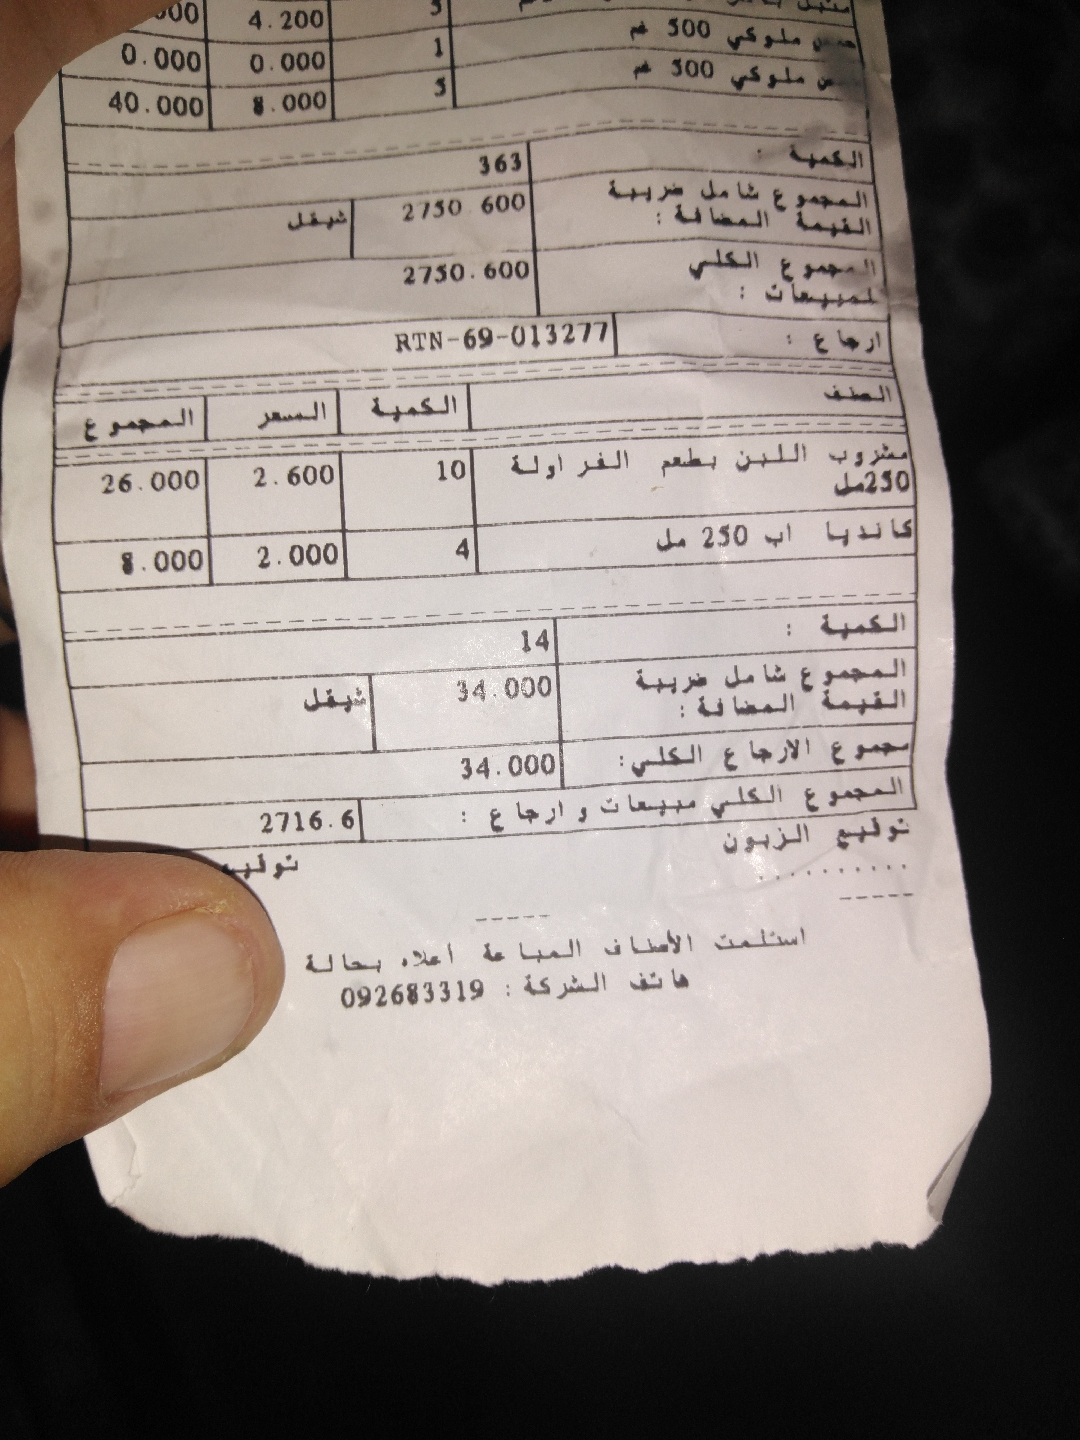 5 4.200
ملوكي 500 غم 1 0.000 0.000
ملوكي 500 غم 5 8.000 40.000
الكمية : 363
المجموع شامل ضريبة 2750.600 شيقل
القيمة المضافة :
المجموع الكلي 2750.600
لمبيعات :
ارجاع : RTN-69-013277
الصنف الكمية السعر المجموع
مشروب اللبن بطعم الفراولة 10 2.600 26.000
250مل
كانديا اب 250 مل 4 2.000 8.000
الكمية : 14
المجموع شامل ضريبة 34.000 شيقل
القيمة المضافة :
مجموع الارجاع الكلي: 34.000
المجموع الكلي مبيعات و ارجاع : 2716.6
توقيع الزبون
..........
-----
-----
استلمت الأصناف المباعة أعلاه بحالة
هاتف الشركة : 092683319